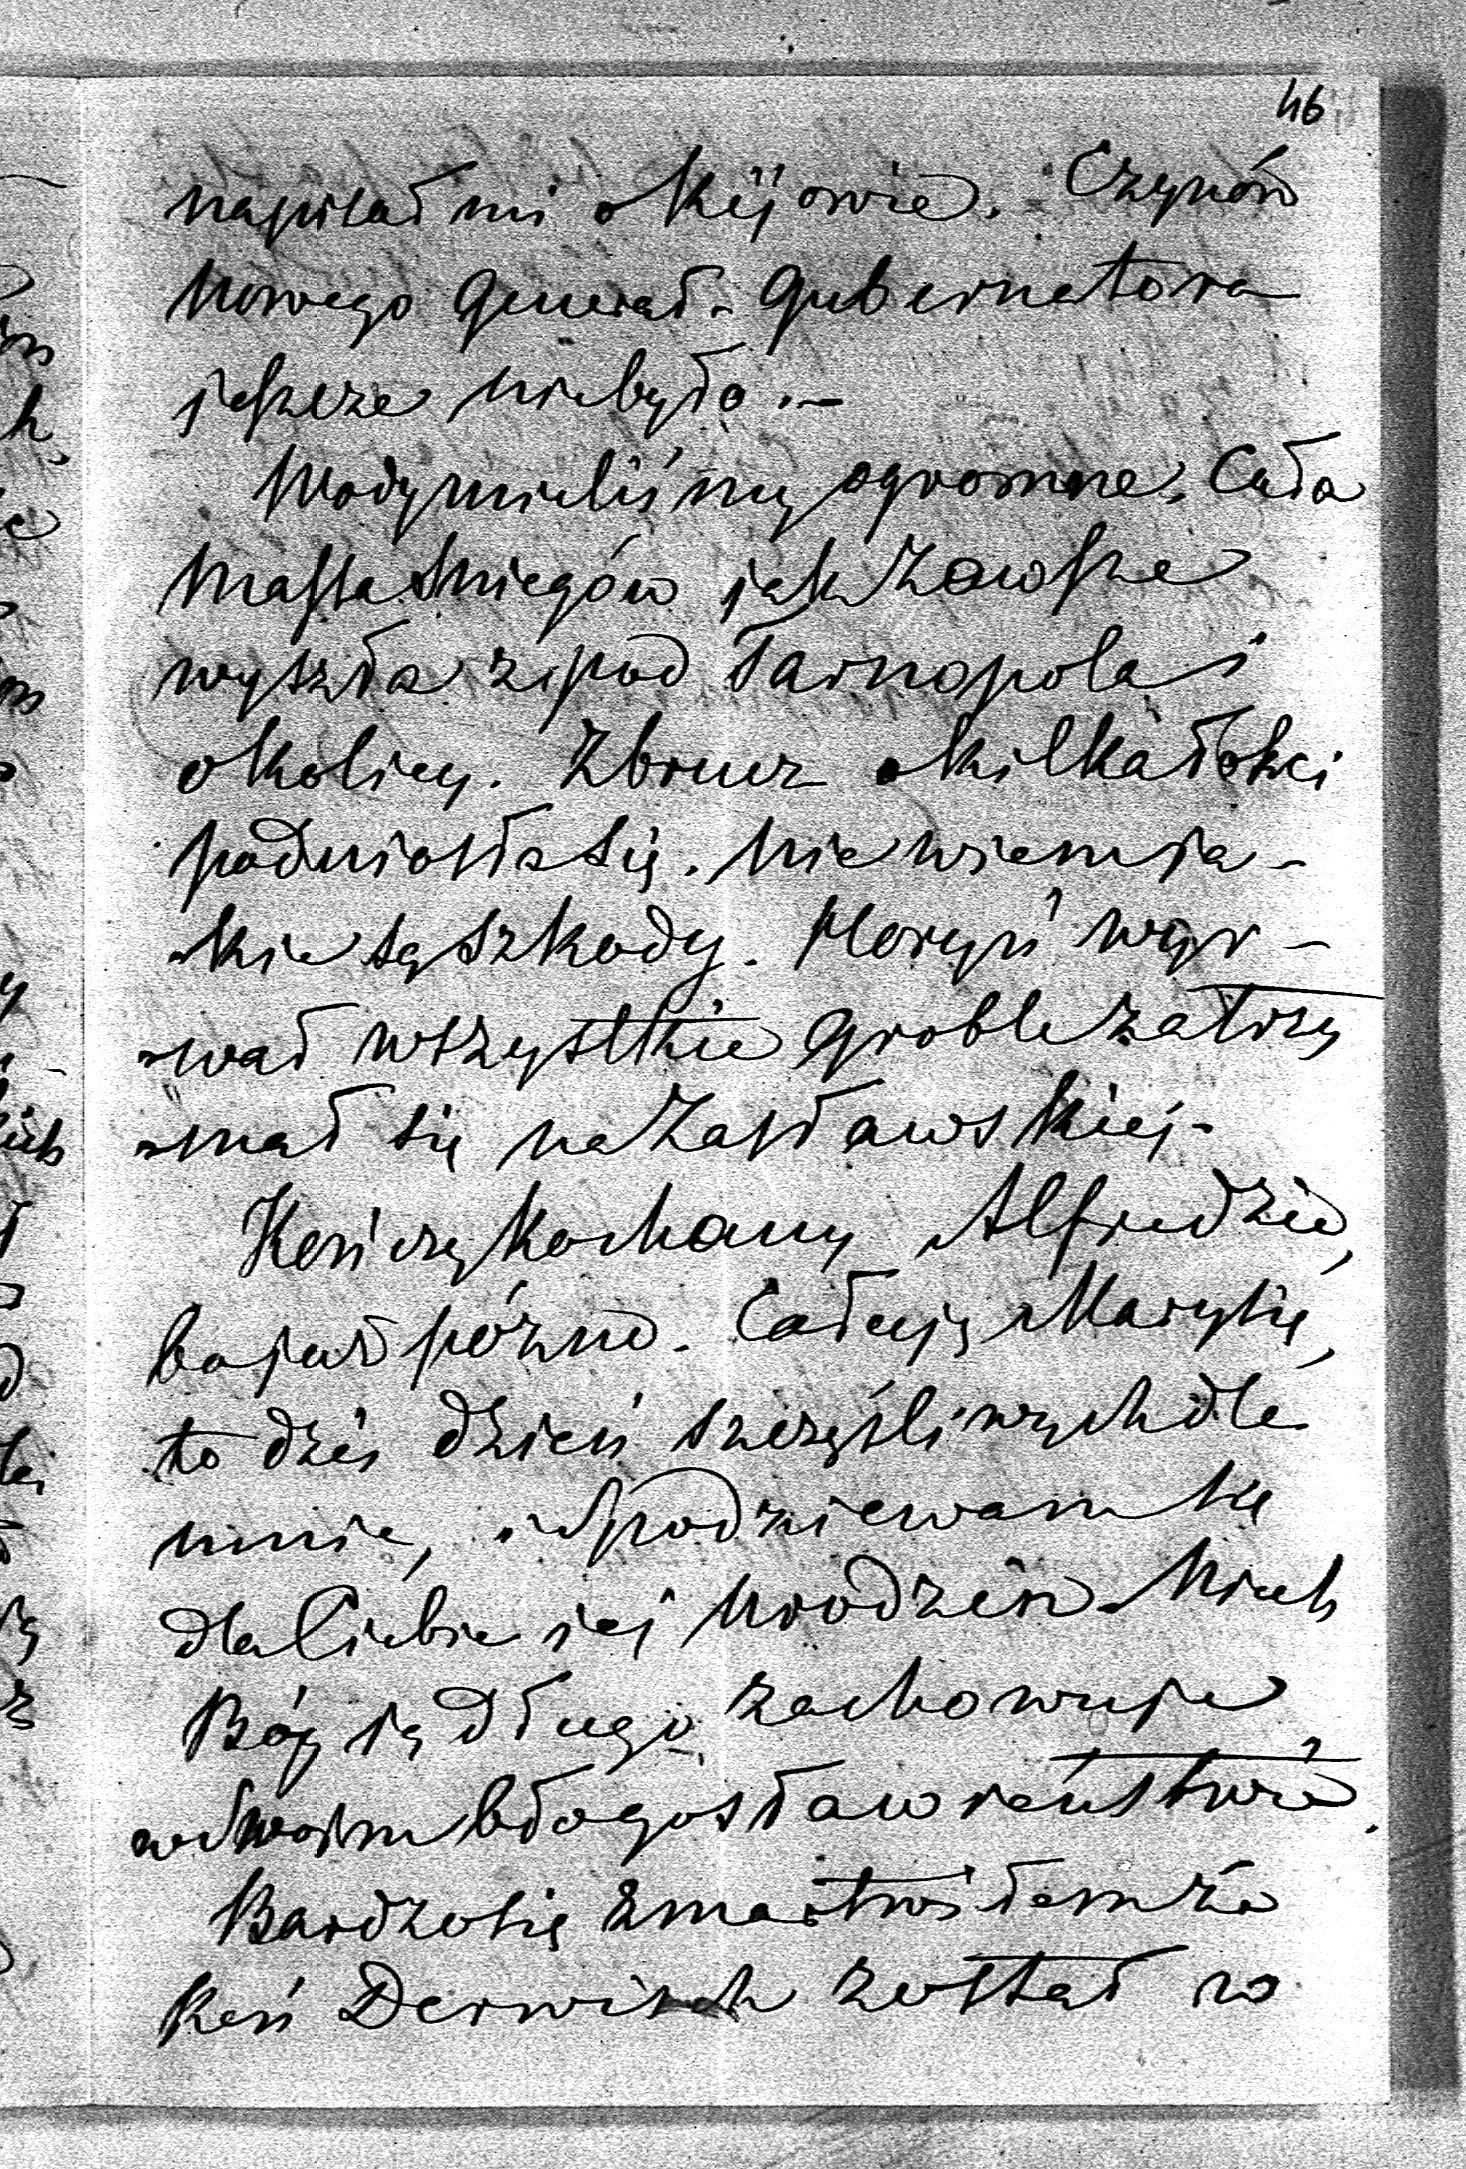 46
napisał mi o Kijowie. Czynów
nowego Generał-Gubernatora
jeszcze niebyło.—
Wody mieliśmy ogromne. Cała
massa śniegów jak zawsze
wyszła z pod Tarnopola i
okolicy. Zbrucz o kilka łokci
podniosła się. Nie wiem ja-
-kie są szkody. Horyń wyr-
-wał wszystkie groble zatrzy
-mał się na Zasławskiéj.
Kończę kochany Alfredzie,
bo już późno. Całuję Marynię,
to dziś dzień szczęśliwych dla
mnie, i spodziewam się
dla Ciebie jej urodzin. Niech
Bóg ją długo zachowuje
w Swoim błogosławieństwie.
Bardzo się zmartwiłem że
koń Derwisch został w